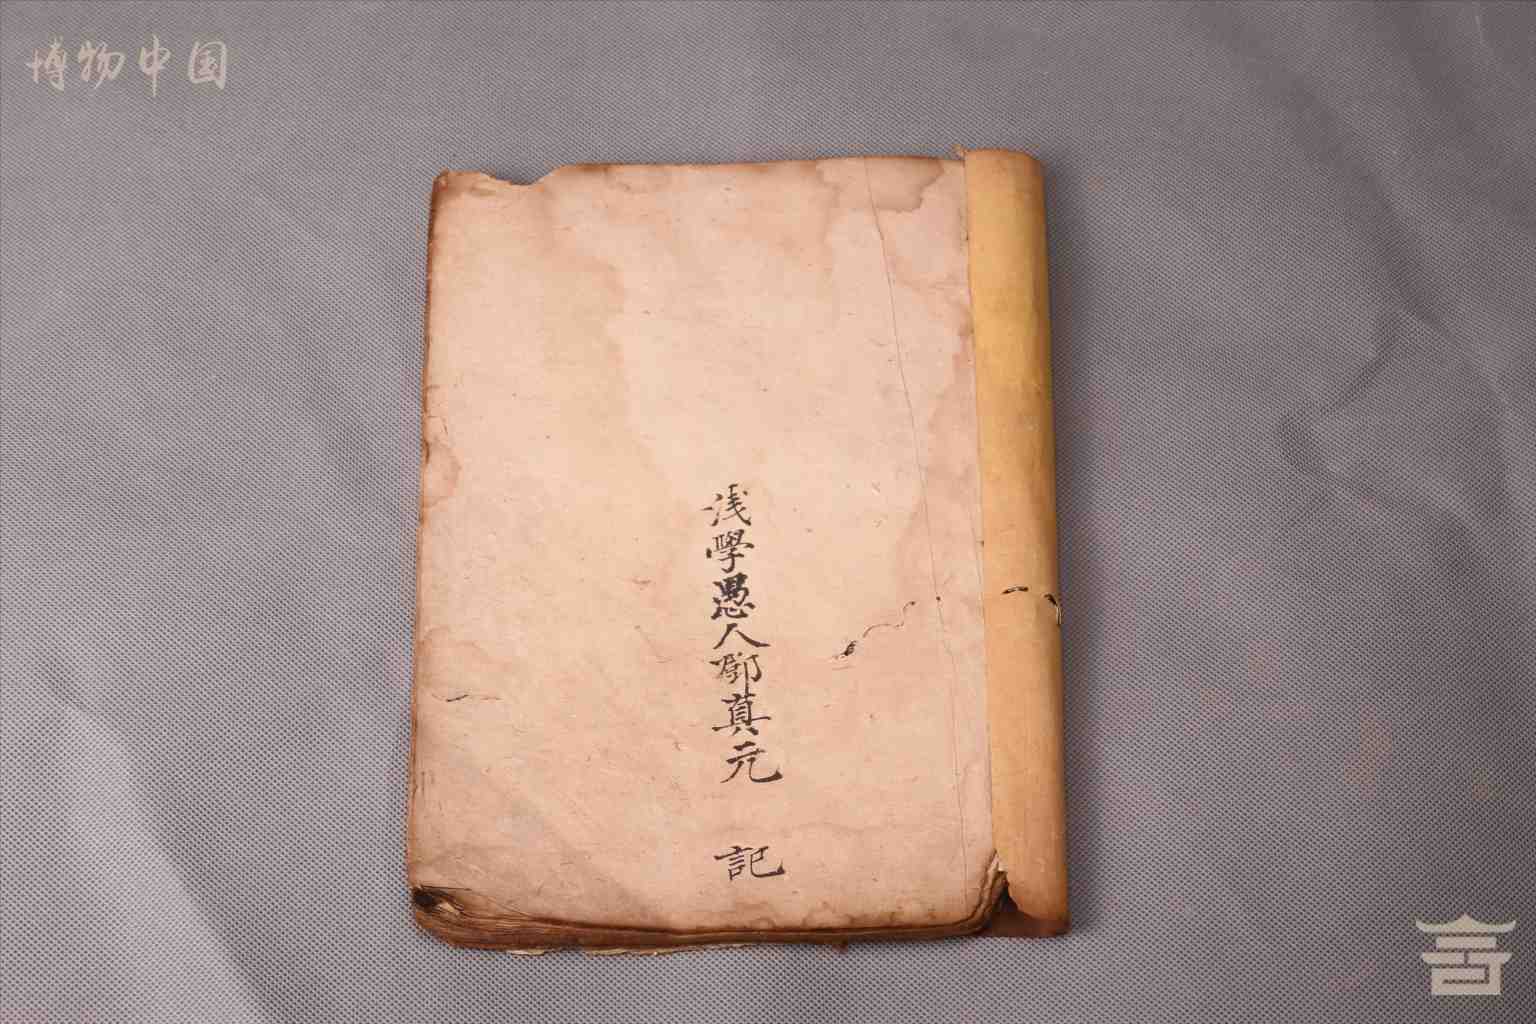 博物中国
浅學愚人鄧真元 記